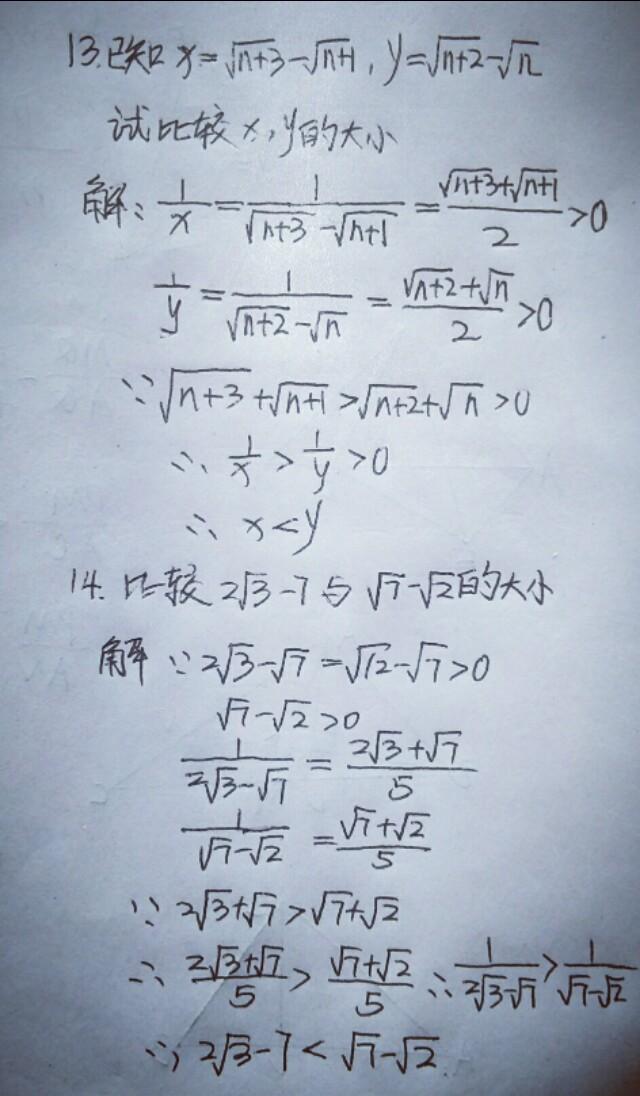 13.已知 x=√(n+3)-√(n+1), y=√(n+2)-√n
试比较x,y的大小
解: 1/x = 1/(√(n+3)-√(n+1)) = (√(n+3)+√(n+1))/2 >0
1/y = 1/(√(n+2)-√n) = (√(n+2)+√n)/2 >0
∵√(n+3)+√(n+1)>√(n+2)+√n>0
∴ 1/x > 1/y >0
∴ x<y
14. 比较2√3-7与√7-√2的大小
解 ∵2√3-√7=√12-√7>0
√7-√2>0
1/(2√3-√7) = (2√3+√7)/5
1/(√7-√2) = (√7+√2)/5
∵ 2√3+√7>√7+√2
∴ (2√3+√7)/5 > (√7+√2)/5 ∴ 1/(2√3-√7) > 1/(√7-√2)
∴ 2√3-7<√7-√2